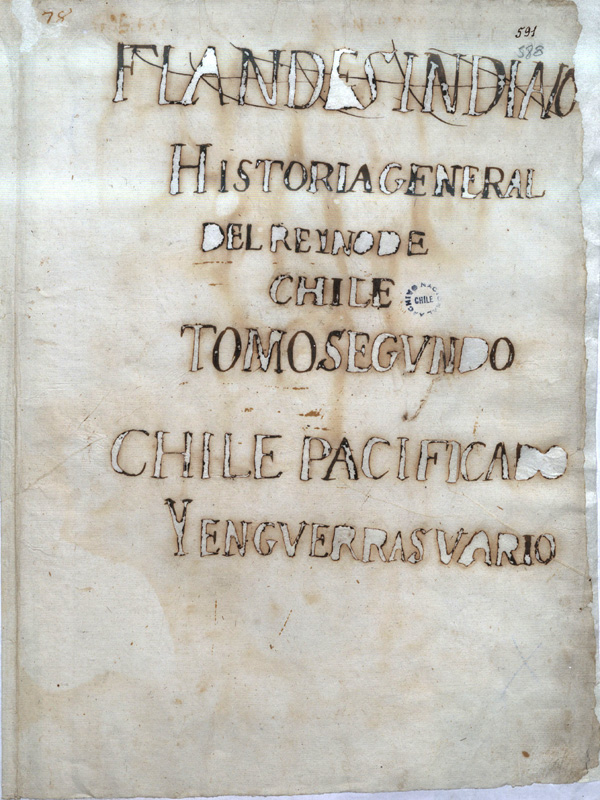 78
591
588
FLANDES YNDIANO
HISTORIA GENERAL
DEL REINO DE
CHILE
ARCHIVO NACIONAL
CHILE
TOMO SEGVNDO
CHILE PACIFICADO
Y EN GVERRAS VARIO